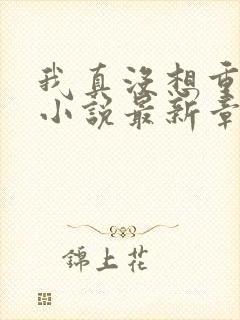 我真没想重
小说最新章
錦上花